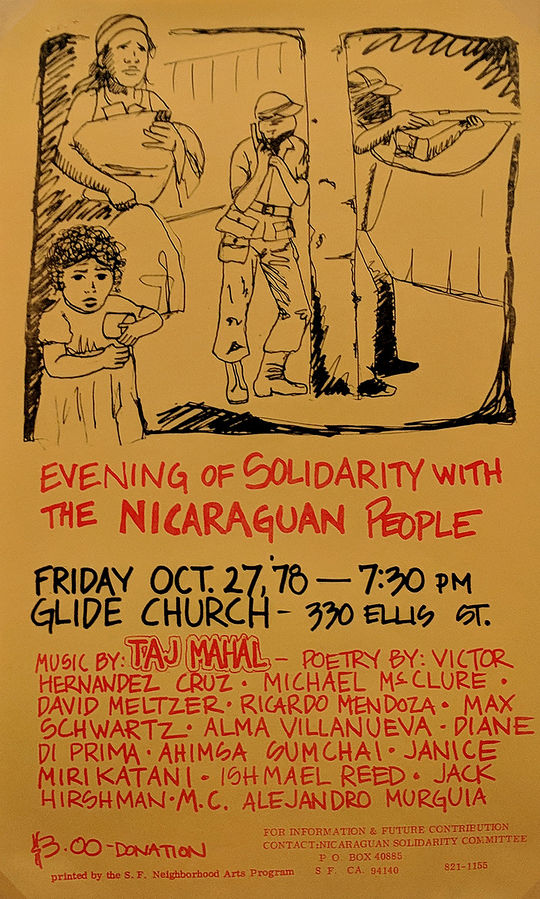 EVENING OF SOLIDARITY WITH
THE NICARAGUAN PEOPLE
FRIDAY OCT. 27, '78 — 7:30 PM
GLIDE CHURCH - 330 ELLIS ST.
MUSIC BY: TAJ MAHAL — POETRY BY: VICTOR
HERNANDEZ CRUZ · MICHAEL McCLURE ·
DAVID MELTZER · RICARDO MENDOZA · MAX
SCHWARTZ · ALMA VILLANUEVA - DIANE
DI PRIMA · AHIMSA SUMCHAI · JANICE
MIRIKATANI · ISHMAEL REED · JACK
HIRSHMAN · M.C. ALEJANDRO MURGUIA
$3.00 - DONATION
printed by the S. F. Neighborhood Arts Program
FOR INFORMATION & FUTURE CONTRIBUTION
CONTACT:NICARAGUAN SOLIDARITY COMMITTEE
P O. BOX 40885
S F. CA. 94140 821-1155